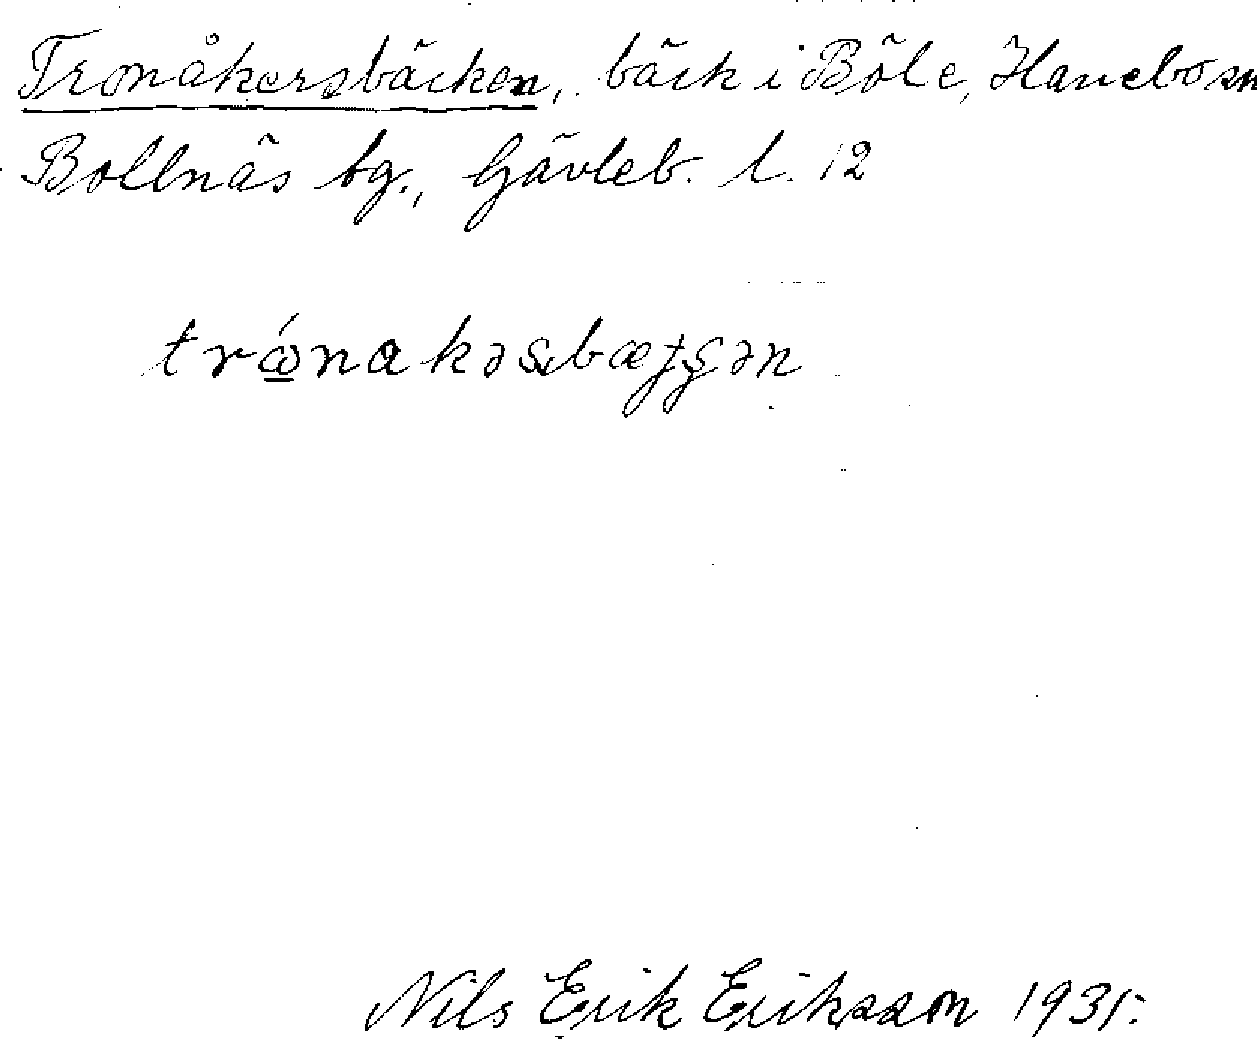 Tronåkersbäcken, bäck i Böle, Hanebo sn
Bollnäs tg., Gävleb. l. 12
Nils Erik Eriksson 1935.